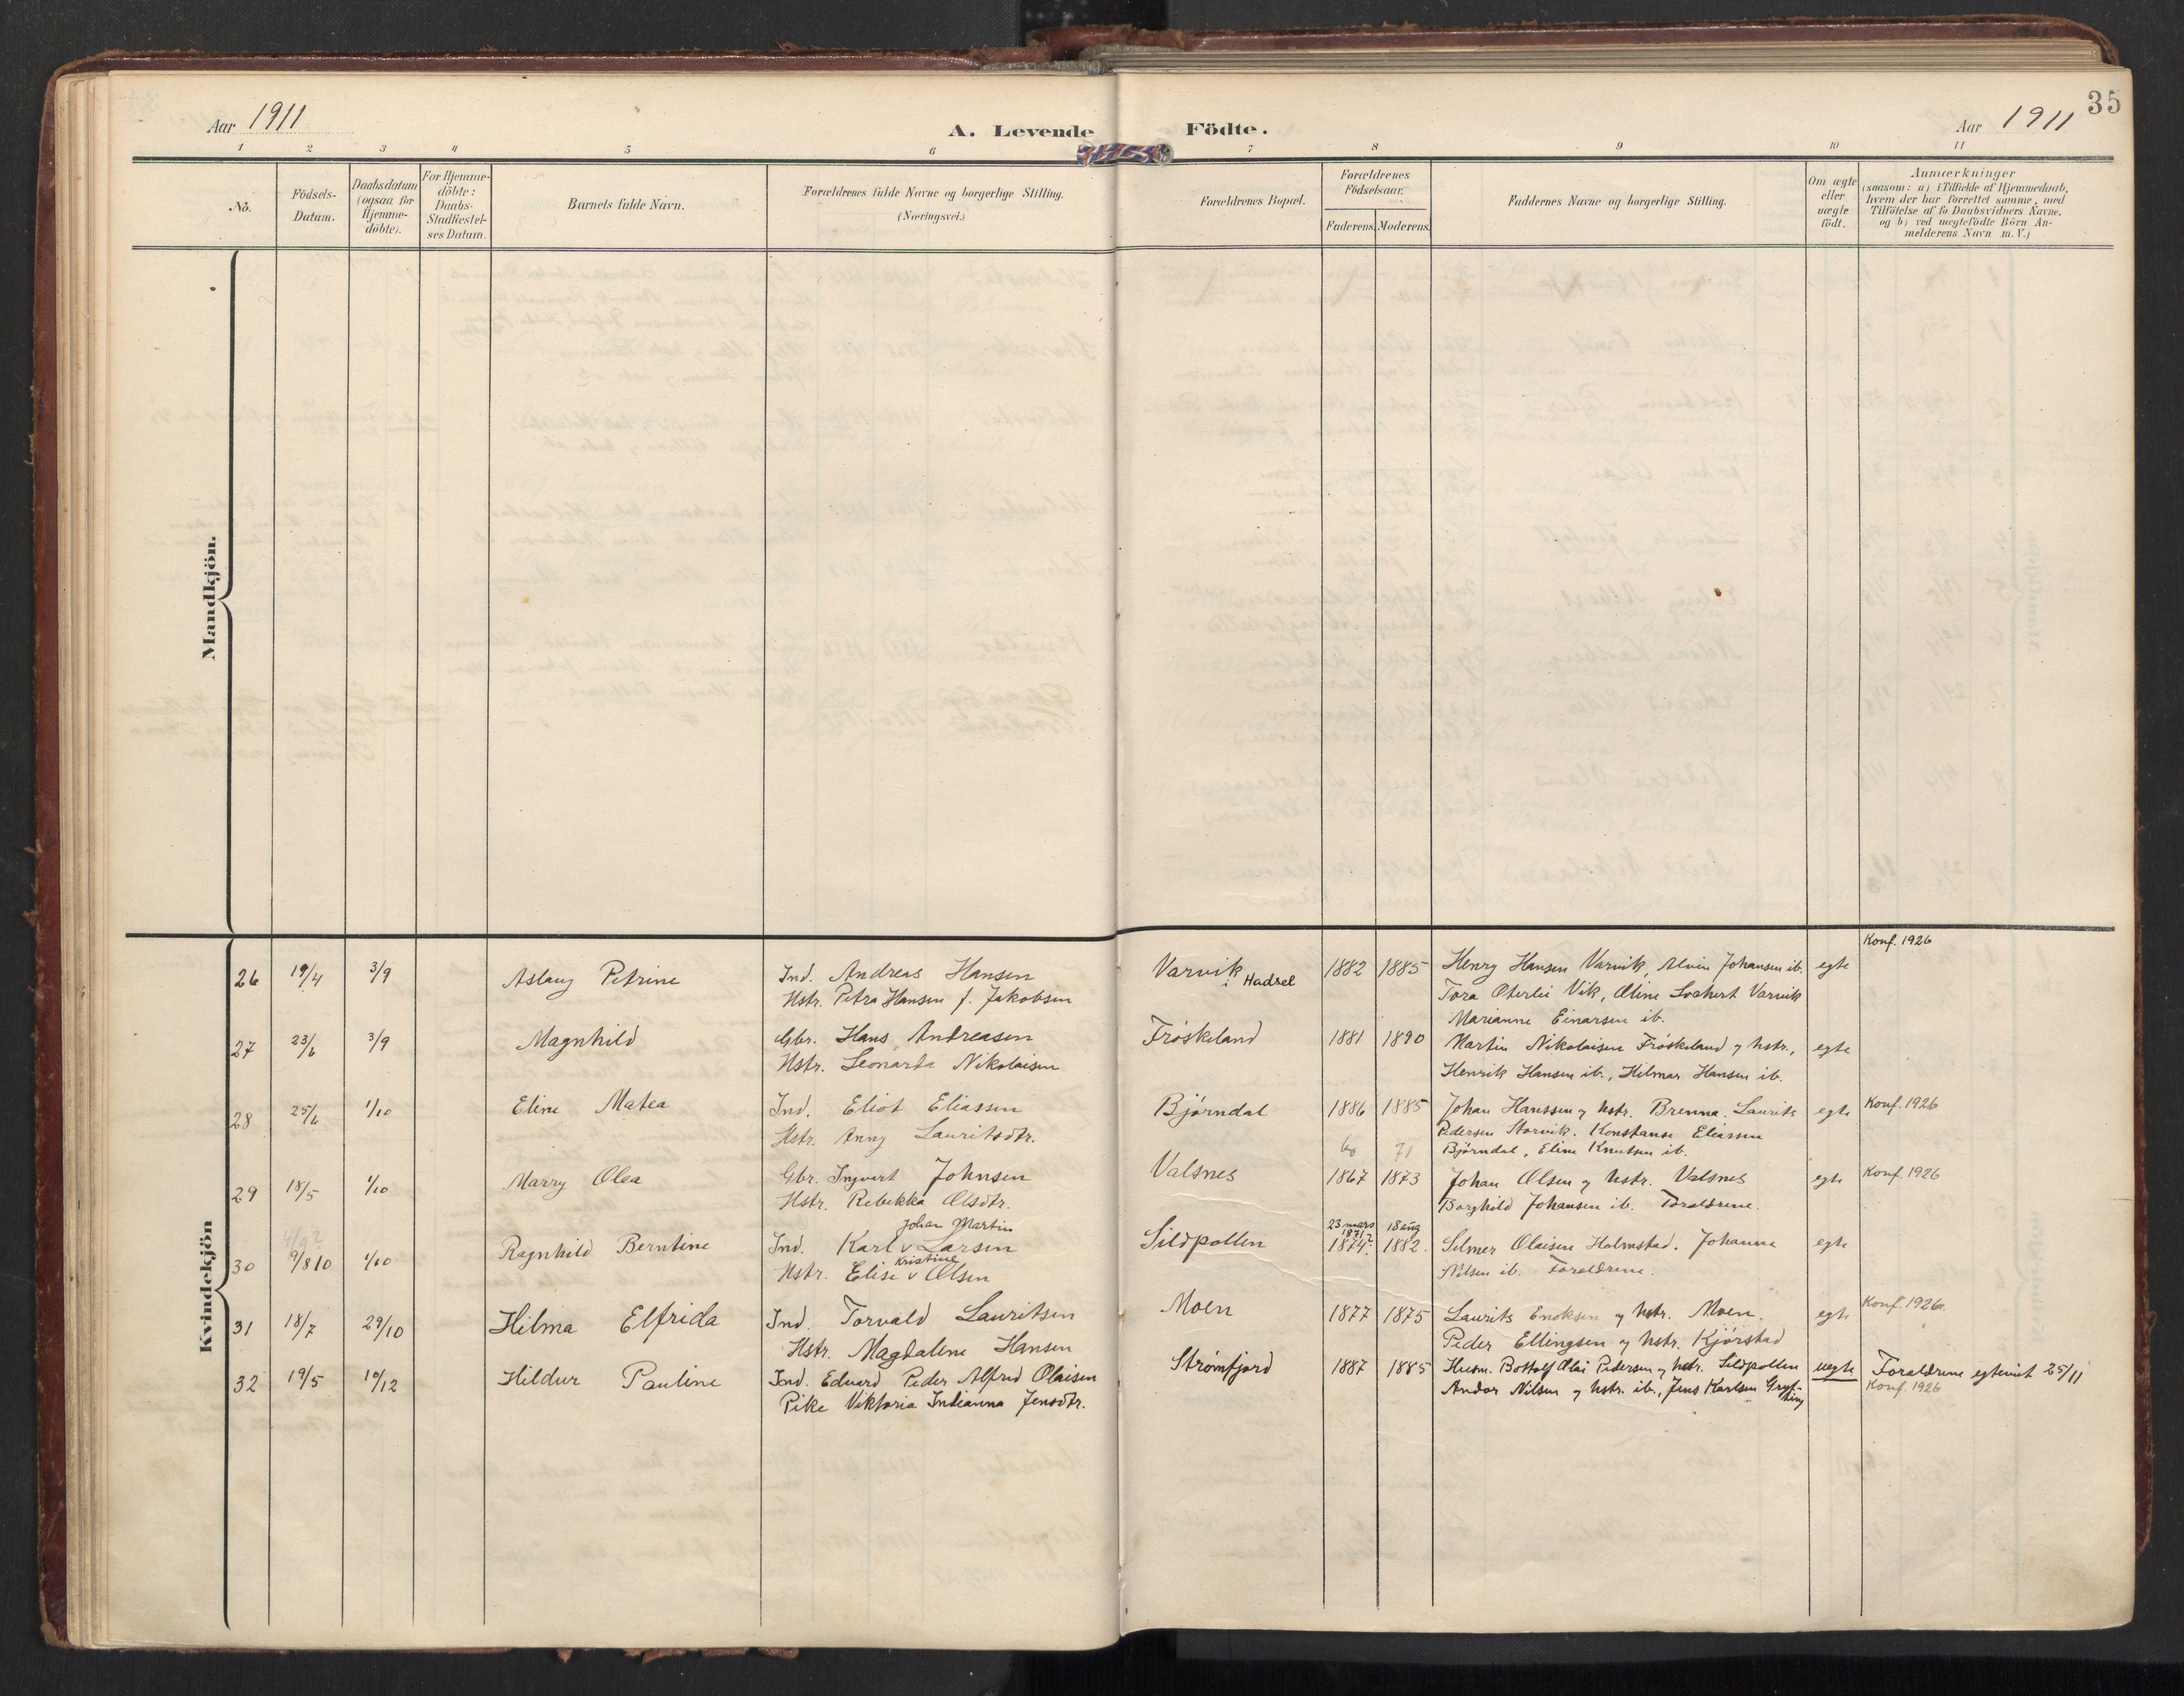 35
Aar 1911
A. Levende Födte.
Aar 1911
1 2 3 4 5 6 7 8 9 10 11
No.
Födsels-
Datum.
Daabsdatum
(ogsaa for
Hjemme-
döbte).
For Hjemme-
döbte:
Daabs-
Stadfæstel-
ses Datum.
Barnets fulde Navn.
Forældrenes fulde Navne og borgerlige Stilling.
(Næringsvei.)
Forældrenes Bopæl.
Forældrenes
Födselsaar.
Faderens. Moderens.
Faddernes Navne og borgerlige Stilling.
Om ægte
eller
uægte
födt.
Anmærkninger
(saasom: a) i Tilfælde af Hjemmedaab,
hvem der har forrettet samme, med
Tilföielse af to Daabsvidners Navne,
og b) ved uægtefödte Börn An-
melderens Navn m. V.)
Mandkjön.
Kvindekjön
Konf. 1926
26 19/4 3/9 Aslaug Petrine Ind. Andreas Hansen Varvik, Hadsel 1882 1885 Henry Hansen Varvik, Alvin Johansen ib. egte
Hstr. Petra Hansen f. Jakobsen Tora Oterlei Vik, Oline Lockert Varvik
Marianne Einarsen ib.
27 23/6 3/9 Magnhild Gbr. Hans Andreasen Frøskeland 1881 1890 Martin Nikolaisen Frøskeland og hstr., egte
Hstr. Leonarda Nikolaisen Henrik Hansen ib., Hilmar Hansen ib.
28 25/6 1/10 Eline Matea Ind. Eliot Eliassen Bjørndal 1886 1885 Johan Hanssen og hstr. Brenna. Laurits egte Konf. 1926
Hstr. Anny Lauritsdtr. Pedersen Storvik. Konstanse Eliassen
71 Bjørndal, Eline Knutsen ib.
29 18/5 1/10 Marry Olea Gbr. Ingvart Johnsen Valsnes 1867 1873 Johan Olsen og hstr. Valsnes egte Konf. 1926
Hstr. Rebekka Olsdtr. Borghild Johansen ib. Foreldrene.
Johan Martin 23 mars 1871? 18 aug
30 9/8 10 1/10 Ragnhild Berntine Ind. Karl v Larsen Sildpollen 1874. 1882. Selmer Olaisen Holmstad. Johanna egte
Kristine
Hstr. Elise v Olsen Nilsen ib. Foreldrene.
31 18/7 29/10 Hilma Elfrida Ind. Torvald Lauritsen Moen 1877 1875 Laurits Enoksen og hstr. Moen. egte Konf. 1926.
Hstr. Magdalene Hansen Peder Ellingsen og hstr. Kjørstad
32 19/5 10/12 Hildur Pauline Ind. Edvard Peder Alfred Olaisen Strømfjord 1887 1885 Husm. Bottolf Olai Pedersen og hstr. Sildpollen uegte Foreldrene egteviet 25/11
Pike Viktoria Indianna Jensdtr. Andor Nilsen og hstr. ib., Jens Karlsen Gryt-
ting Konf. 1926